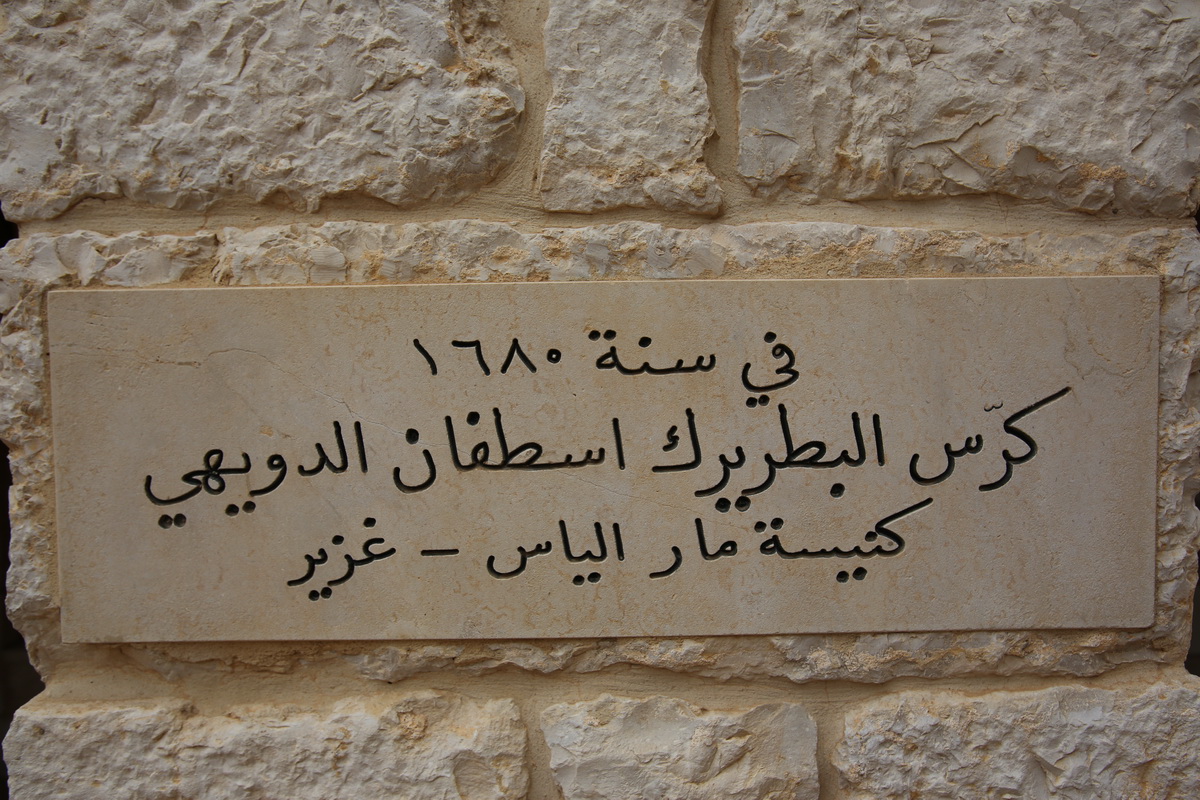 في سنة ١٦٨٠
كرّس البطريرك اسطفان الدويهي
كنيسة مار الياس - غزير